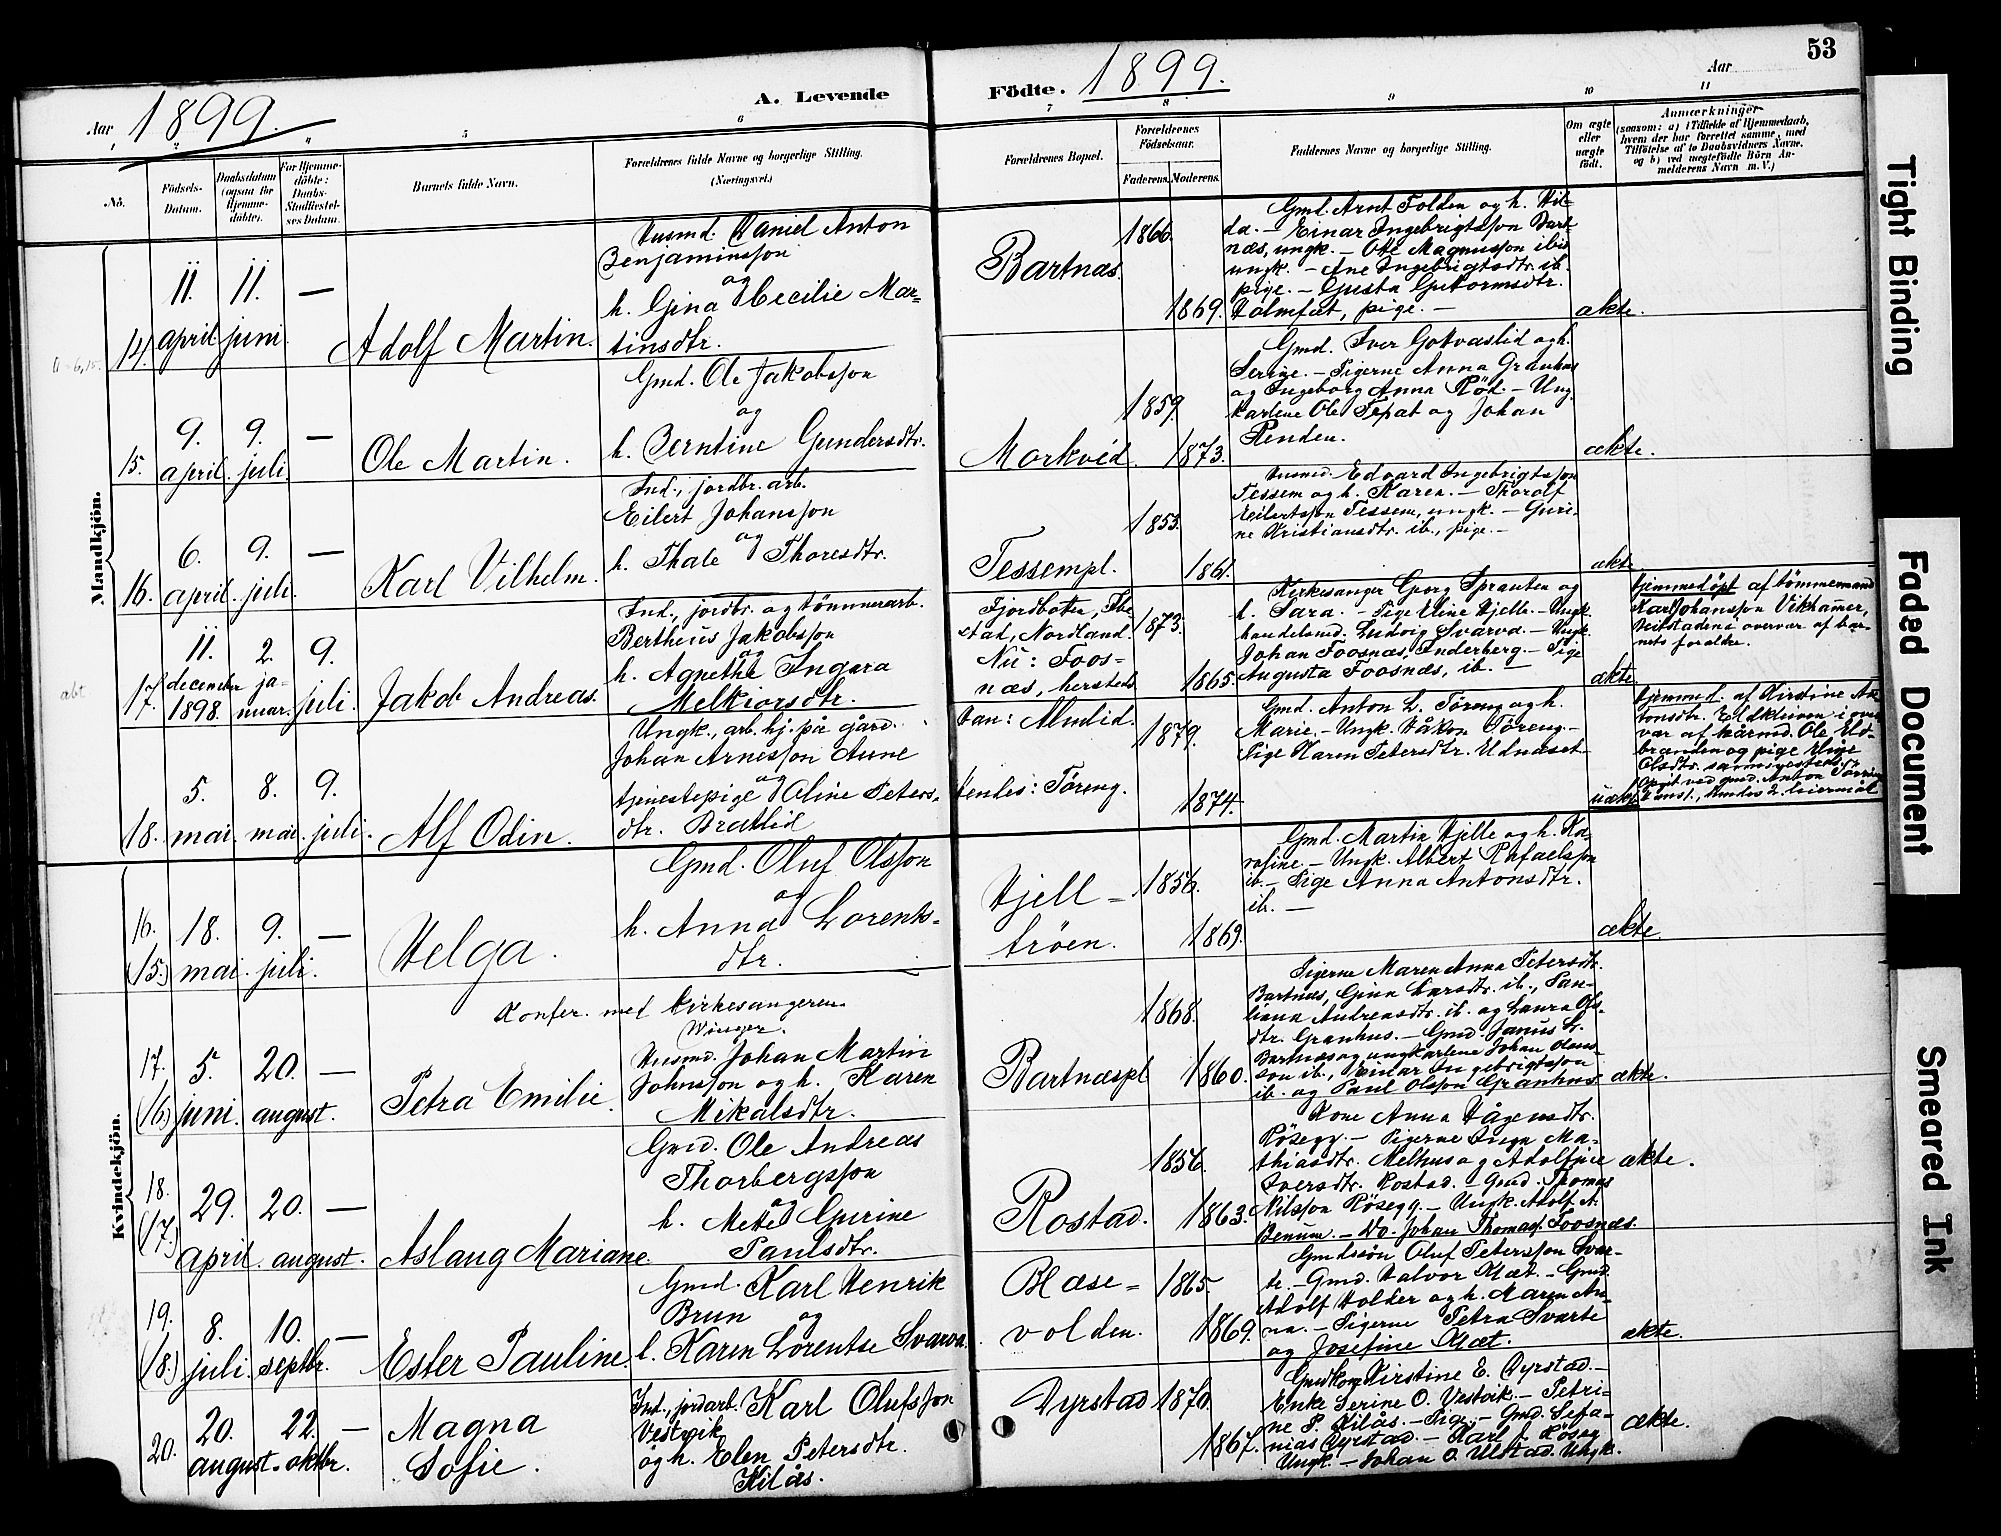 53
Aar 1899.
A. Levende
Födte. 1899.
Aar
5
6
7
8
9
10
11
No.
Födsels-
Datum.
Daabsdatum
(ogsaa for
Hjemme-
döbte).
For Hjemme-
döbte:
Daabs-
Stadfæstel-
ses Datum.
Barnets fulde Navn.
Forældrenes fulde Navne og borgerlige Stilling.
(Næringsvei.)
Forældrenes Bopæl.
Forældrenes
Födselsaar.
Faderens.
Moderens.
Faddernes Navne og borgerlige Stilling.
Om ægte
eller
uægte
födt.
Anmærkninger
(saasom: a) i Tilfælde af Hjemmedaab,
hvem der har forrettet samme, med
Tilföielse af to Daabsvidners Navne,
og b) ved uægtefödte Börn An-
melderens Navn m. V.)
Mandkjön.
14.
11.
april
11.
juni.
—
Adolf Martin.
Husmd. Daniel Anton
Benjaminsson
og
h. Gina Cecilie Mar-
tinsdtr.
Bartnæs.
1866.
1869.
Gmd. Arnt Folden og h. Hil-
da. — Einar Ingebrigtsson Bart-
næs, ungk. — Ole Magnusson ibid.
ungk. — Ane Ingebrigtsdtr. ib.
pige. — Gusta Guttormsdtr.
Holmset, pige. —
ækte.
15.
9.
april.
9.
juli.
—
Ole Martin.
Gmd. Ole Jakobsson
og
h. Berntine Gundersdtr.
Morkved.
1859.
1873.
Gmd. Iver Gotvaslid og h.
Serine. — Pigerne Anna Granhus
og Ingeborg Anna Röd. — Ung-
karlene Ole Tepat og Johan
Renden.
ækte.
16.
6.
april.
9.
juli.
—
Karl Vilhelm.
Ind., jordbr. arb.
Eilert Johansson
og
h. Thale Thoresdtr.
Tessempl.
1853.
1861.
Husmd. Edvard Ingebrigtsson
Tessem og h. Karen. — Thorolf
Eilertsson Tessem, ungk. — Guri-
ne Kristiansdtr. ib., pige. —
ækte
17.
11.
december
1898.
2.
ja-
nuar.
9.
juli.
Jakob Andreas.
Ind., jordbr. og tömmerarb.
Bertheus Jakobsson
og
h. Agnethe Ingara
Melkiorsdtr.
Fjordbotten, Ibe-
stad, Nordland.
Nu: Foos-
næs, hersteds
1873.
1865.
Kirkesanger Georg Sprauten og
h. Sara. — Pige Eline Hjelle. — Ungk.
handelsmd. Ludvig Svarva. — Ungk.
Johan Foosnæs, Inderberg. — Pige
Augusta Foosnæs, ib. —
ækte.
Hjemmedöpt af tömmermand
Karl Johansson Vikhammer,
Beitstaden i overvær af bar-
nets forældre.
18.
5.
mai.
8.
mai.
9.
juli.
Alf Odin.
Ungk., arb. hj. på gård.
Johan Arnesson Aune
og
tjenestepige Oline Peters-
dtr. Bratlid
Han: Almlid.
Hendes: Töreng.
1879.
1874.
Gmd. Anton L. Töreng og h.
Marie. — Ungk. Håkon Töreng. —
Pige Maren Petersdtr. Udnæset.
uækte
Hjemmed. af Kirstine An-
tonsdtr. Eldkleiven i over-
vær af kårmd. Ole Ud-
branden og pige Elise
Olsdtr. sammesteds.
Kvindekjön.
16.
(15.)
18.
mai.
9.
juli.
—
Helga.
Gmd. Oluf Olsson
og
h. Anna Lorents-
dtr.
Hjell-
tröen.
1856.
1869.
Gmd. Martin Hjelle og h. Ka-
rafine. — Ungk. Albert Rafaelsson
ib. — Pige Anna Antonsdtr.
ib. —
ækte.
Konfer. med kirkesangeren
17.
(16)
5.
juni.
20.
august.
—
Petra Emilie.
Husmd. Johan Martin
Johnsson og h. Karen
Mikalsdtr.
Bartnæspl
1868.
1860.
Pigerne Maren Anna Petersdtr.
Bartnæs, Gina Larsdtr. ib., Pau-
liana Andreasdtr. ib. og Laura Ols-
dtr. Granhus. — Gmd. Janus L.
Bartnæs og ungkarlene Johan Olaus-
son ib., Einar Ingebrigtsson
ib. og Paul Olsson Granhus
ækte.
18.
(17.)
29.
april.
20.
august.
—
Aslaug Mariane.
Gmd. Ole Andreas
Thorbergsson
og
h. Mette Gurine
Paulsdtr.
Rostad.
1856.
1863.
Kone Anna Hågensdtr.
Rösegg. — Pigerne Inga Ma-
thiasdtr. Melhus og Adolfine
Iversdtr. Rostad. — Gmd. Thomas
Nilsson Rösegg. — Ungk. Adolf A.
Benum. — Do. Johan Thomas. Foosnæs.
ækte.
19.
(18.)
8.
juli.
10.
septbr.
—
Ester Pauline.
Gmd. Karl Henrik
Brun og
h. Karen Lorentse Svarva.
Blæse-
volden.
1865.
1869.
Gmdssön Oluf Petersson Svar-
te. — Gmd. Halvor Klæt. — Gmd.
Adolf Holder og h. Maren An-
na. — Pigerne Petra Svarte
og Josefine Klæt.
ækte.
20.
20.
august.
22.
oktbr.
—
Magna
Sofie.
Ind., jordarb. Karl Olufsson
Vestvik
og h. Elen Petersdtr.
Kilås.
Dyrstad
1870.
1867.
Gmdkone Kirstine E. Dyrstad. —
Enke Serine O. Vestvik. — Petri-
ne P. Kilås. — Pige. — Gmd. Sefa-
nias Dyrstad. — Karl J. Rösegg
Ungk. — Johan O. Ulstad. Ungk.
ækte.
Tight Binding
Faded Document
Smeared Ink